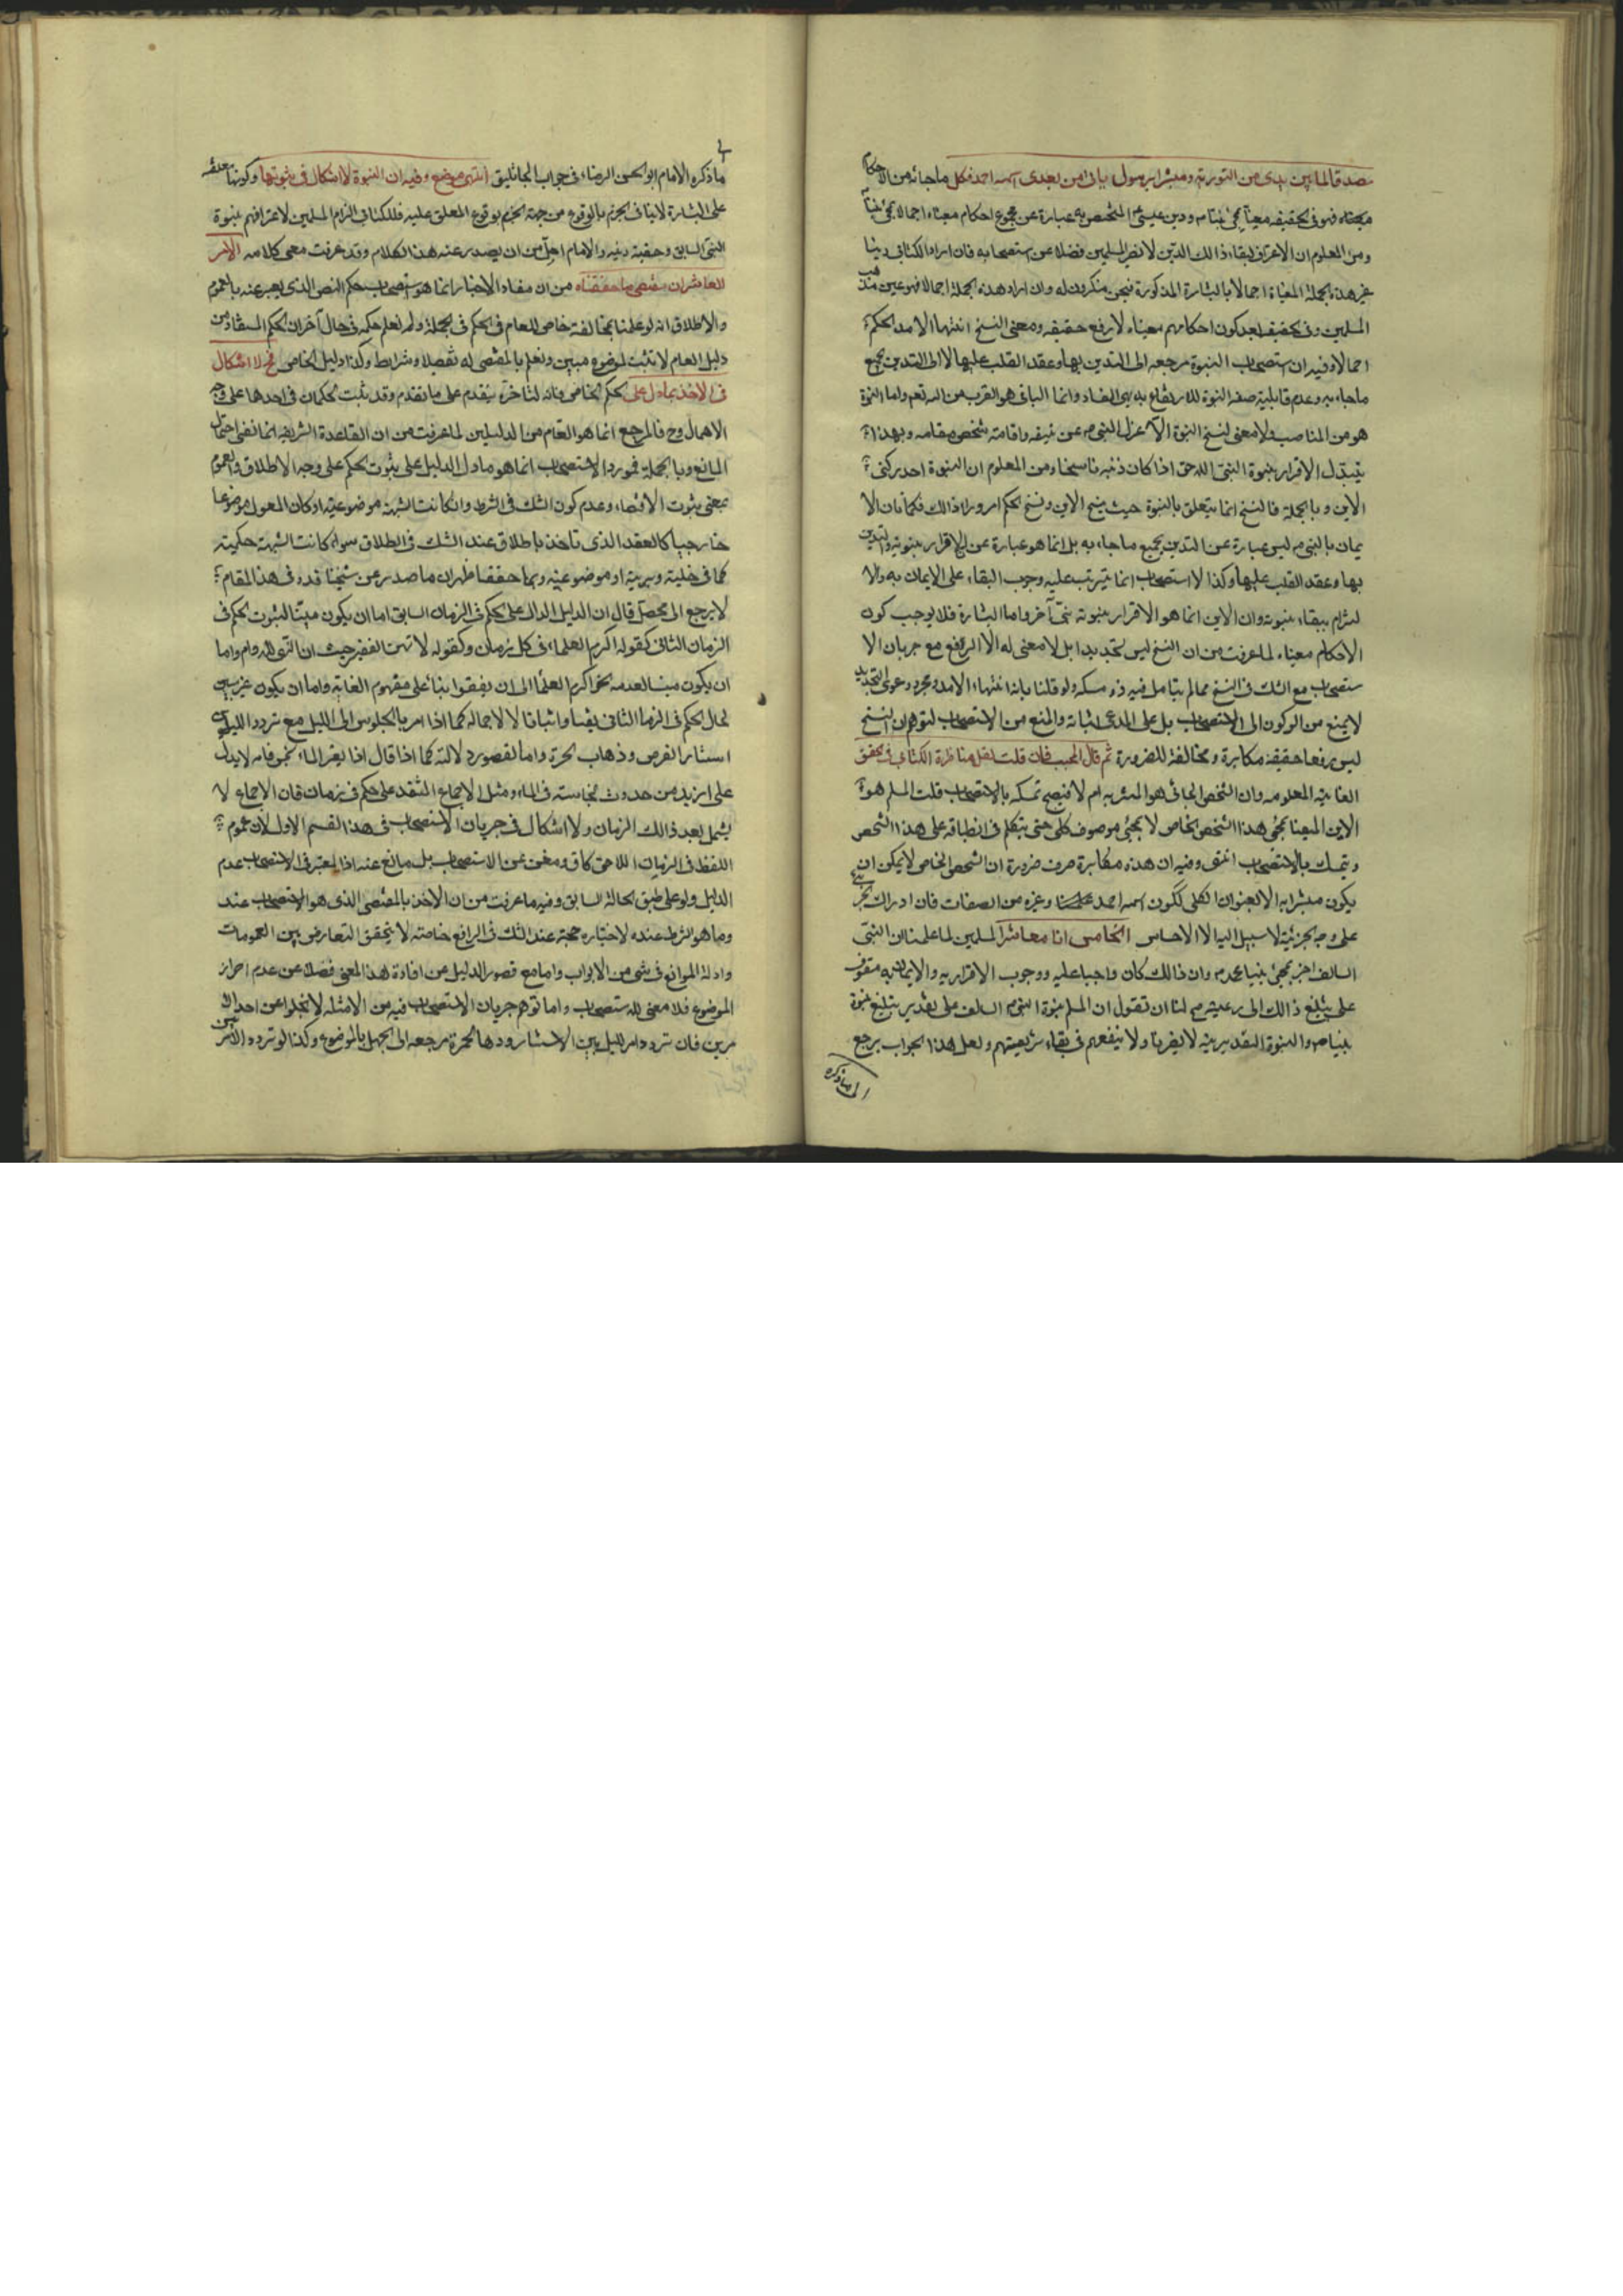 مصدقا لما بين يدى من التورية ومبشرا برسول ياتى من بعدى اسمه احمد فكل ما جائه من الاحكام
فهو فى الحقيقة مغيا بمجئ نبينا ص ودين عيسى المختص به عبارة عن مجموع احكام مغياة اجمالا بمجئ نبينا
ومن المعلوم ان الاعتراف ببقاء ذالك الدين لا يضر المسلمين فضلا عن استصحابه فان اراد الكتابى دينا
غير هذه الجملة المغياة اجمالا بالبشارة المذكورة فنحن منكرون له وان اراد هذه الجملة اجمالا فهو عين مذهب
المسلمين وفى الحقيقة بعد كون احكامهم مغياة لا رفع حقيقة ومعنى النسخ انتهاء الامد الحكم
اجمالا وفيه ان استصحاب النبوة مرجعه الى التدين بها وعقد القلب عليها لا الى التدين بجميع
ما جاء به وعدم قابلية صفة النبوة للارتفاع بديهى الفساد وانما الباقى هو القرب من الله تعم واما النبوة
هو من المناصب ولا معنى لنسخ النبوة الا عزل النبى ص عن واقامة شخص مقامه وبهذا
يتبدل الاقرار بنبوة النبى اللاحق اذا كان دينه ناسخا ومن المعلوم ان النبوة احد ركنى
الدين و بالجملة فالنسخ انما يتعلق بالنبوة حيث ينسخ الدين ونسخ الحكم امر وراء ذالك فكما ان الا
يمان بالنبى ص ليس عبارة عن التدين بجميع ما جاء به بل انما هو عبارة عن الاقرار بنبوته والتدين
بها وعقد القلب عليها وكذا الاستصحاب انما يترتب عليه وجوب البقاء على الايمان به والا
لتزام ببقاء نبوته وان الدين انما هو الاقرار بنبوة نبى آخر واما البشارة فلا يوجب كون
الاحكام مغياة لما عرفت من ان النسخ ليس تحديدا بل لا معنى له الا الرفع مع جريان الا
ستصحاب مع الشك فى النسخ مما لم يتامل فيه ذو مسكة ولو قلنا بانه انتهاء الامد ومجرد دعوى التحديد
لا يمنع من الركون الى الاستصحاب بل على المدعى اثباته والمنع من الاستصحاب لتوهم ان النسخ
ليس رفعا حقيقة مكابرة ومخالفة للضرورة ثم قال المجيب فان قلت لعل مناظرة الكتابى فى تحقق
الغاية المعلومة وان الشخص الجائى هو المبشر به ام لا فيصح تمسكه بالاستصحاب قلت المسلم هو
الدين المغيا بمجئ هذا الشخص الخاص لا بمجئ موصوف كلى حتى يتكلم فى انطباقه على هذا الشخص
و يتمسك بالاستصحاب انتهى وفيه ان هذه مكابرة صرف ضرورة ان الشخص الخاص لا يمكن ان
يكون مبشرا به الا بعنوان الكلى ككون اسمه احمد وغيره من الصفات فان ادراك الجزئى
على وجه الجزئية لا سبيل اليه الا الاحساس الخامس انا معاشر المسلمين لما علمنا ان النبى
السالف اخبر بمجئ نبينا محمد ص وان ذالك كان واجبا عليه ووجوب الاقرار به والايمان به متوقف
على تبليغ ذالك الى رعيته ص لنا ان نقول ان المسلم نبوة النبى السالف على تقدير تبليغ نبوة
نبينا ص والنبوة التقديرية لا يضرنا ولا ينفعهم فى بقاء شريعتهم ولعل هذا الجواب يرجع
الى ما ذكره
ما ذكره الامام ابو الحسن الرضاء فى جواب الجاثليق انتهى موضع وفيه ان النبوة لا اشكال فى ثبوتها وكونها معلقة
على البشارة لا ينافى الجزم بالوقوع من جهة الجزم بوقوع المعلق عليه فللكتابى الزام المسلمين لاعترافهم بنبوة
النبى السابق وحقية دينه والامام اجل من ان يصدر عنه هذا الكلام وقد عرفت معنى كلامه الامر
العاشر ان مقتضى ما حققناه من ان مفاد الاخبار انما هو استصحاب حكم النص الذى يعبر عنه بالعموم
والاطلاق انه لو علمنا بمخالفة خاص للعام فى الحكم فى الجملة ولم نعلم حكمه فى حال آخر ان الحكم المستفاد من
دليل العام لا تثبت لموضوع مبين ونعلم بالمقتضى له تفصيلا وشرايط وكذا دليل الخاص فح لا اشكال
فى الاخذ بما دل على الحكم الخاص فانه لتاخره يتقدم على ما تقدم وقد يثبت الحكمان فى احدهما على وجه
الاهمال وح فالمرجع انما هو العام من الدليلين لما عرفت من ان القاعدة الشريفة انما نفى احتمال
المانع وبالجملة فمورد الاستصحاب انما هو ما دل الدليل على ثبوت الحكم على وجه الاطلاق والعموم
بمعنى ثبوت الاقتضاء وعدم كون الشك فى الشرط وان كانت الشبهة موضوعية او كان المعول موضوعا
خارجيا كالعقد الذى تاخذ باطلاق عند الشك فى الطلاق سواء كانت الشبهة حكمية
كما فى خلية وبرية او موضوعية وبما حققنا ظهر ان ما صدر عن شيخنا قده فى هذا المقام
لا يرجع الى محصل قال ان الدليل الدال على الحكم فى الزمان السابق اما ان يكون مبينا لثبوت الحكم فى
الزمان الثانى كقوله اكرم العلماء فى كل زمان وكقوله لا تهن الفقير حيث ان النهى للدوام واما
ان يكون مبينا لعدمه نحو اكرم العلماء الى ان يفسقوا بناء على مفهوم الغاية واما ان يكون غير مبين
لحال الحكم فى الزمان الثانى نفيا واثباتا لا لاجماله كما اذا امر بالجلوس الى الليل مع تردد الليل بين
استتار القرص وذهاب الحمرة واما لقصور دلالته كما اذا قال اذا تغير الماء نجس فانه لا يدل
على ازيد من حدوث نجاسته فى الماء ومثل الاجماع المنعقد على حكم فى زمان فان الاجماع لا
يشمل بعد ذالك الزمان ولا اشكال فى جريان الاستصحاب فى هذا القسم الاول لان عموم
اللفظ فى الزمان اللاحق كاف ومغن عن الاستصحاب بل مانع عنه اذ المعتبر فى الاستصحاب عدم
الدليل ولو على طبق الحالة السابق وفيه ما عرفت من ان الاخذ بالمقتضى الذى هو الاستصحاب عند
وما هو الشرط عنده لاختياره حجته عند الشك فى الرافع خاصته لا يتحقق التعارض بين العمومات
وادلة الموانع فى شئ من الابواب واما مع قصور الدليل عن افادة هذا المعنى فضلا عن عدم احراز
الموضوع فلا معنى للاستصحاب واما توهم جريان الاستصحاب فيه من الامثلة لا تخلوا عن احد الا
مرين فان تردد امر الليل بين الاستتار وذهاب الحمرة مرجعه الى الجهل بالموضوع وكذا لو تردد الامر بين